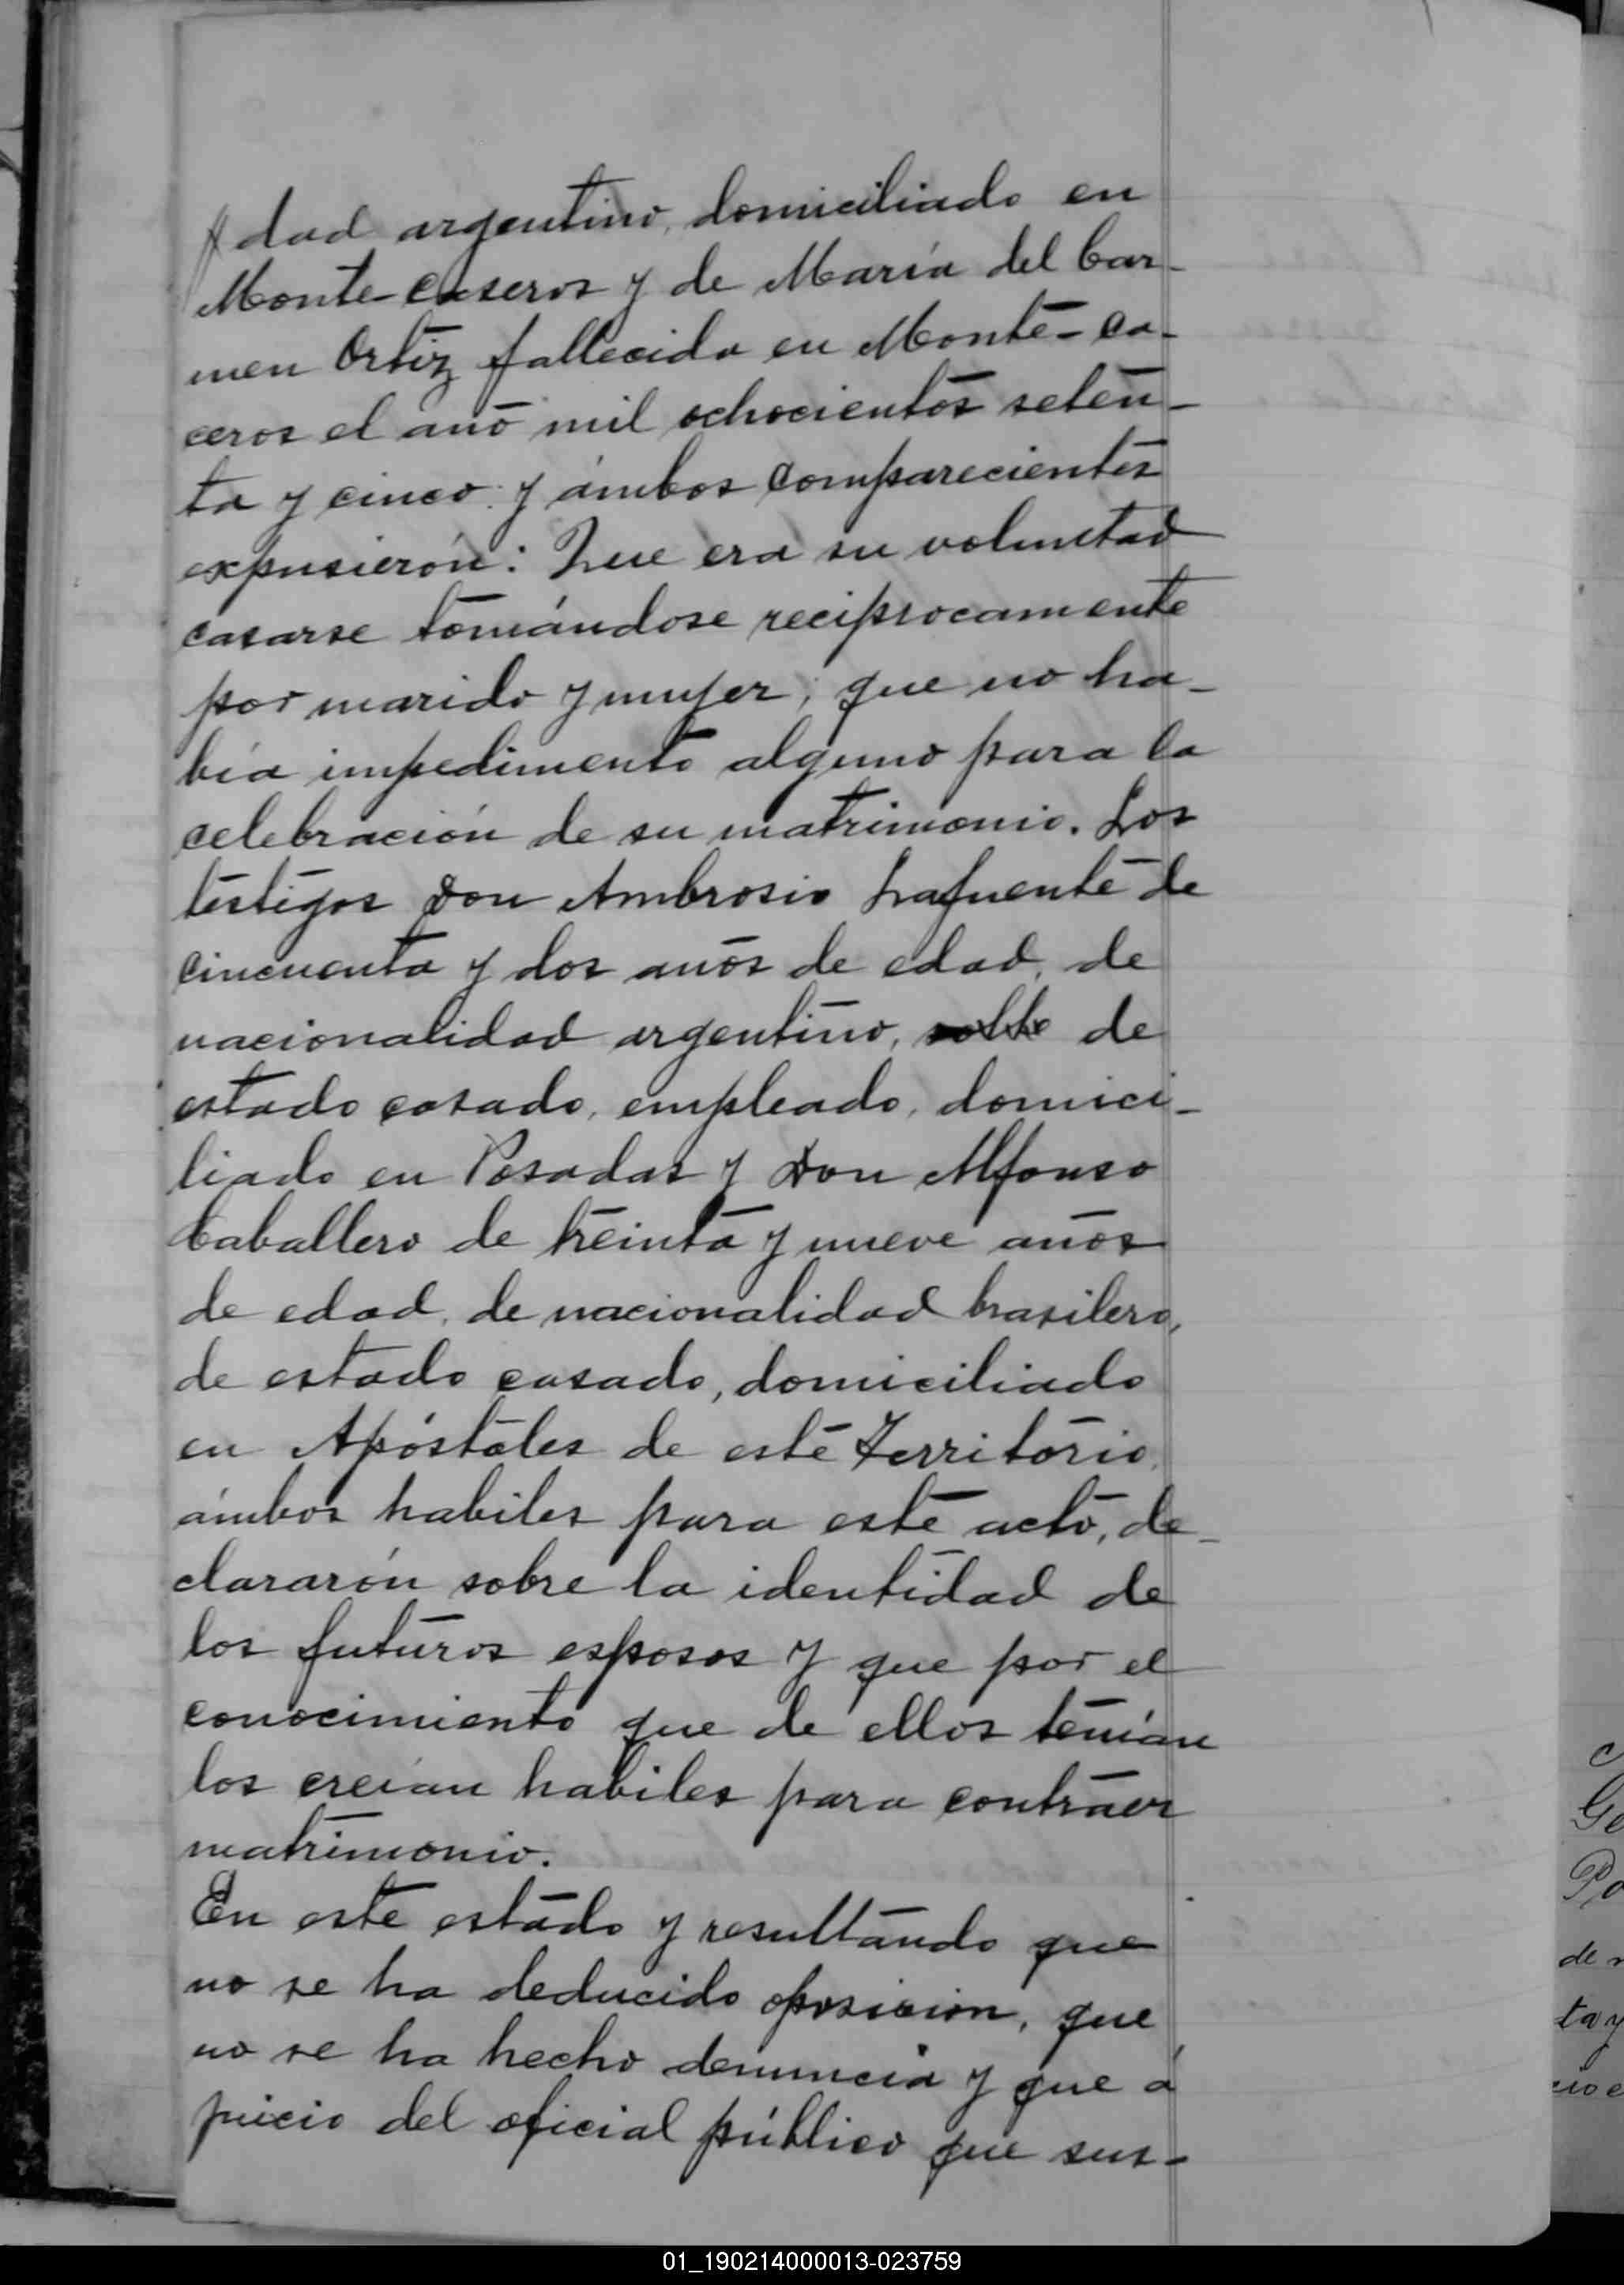 dad argentino, domiciliado en
Monte-Caseros y de María del Car-
men Ortiz fallecida en Monte-Ca-
ceros el año mil ochocientos seten-
ta y cinco: y ámbos comparecientes
expusierón: Que era su voluntad
casarse tomándose reciprocamente
por marido y mujer; que no ha-
bía impedimento alguno para la
celebración de su matrimonio. Los
testigos Don Ambrosio Lafuente de
cincuenta y dos años de edad, de
nacionalidad argentino, de
estado casado, empleado, domici-
liado en Posadas y Don Alfonso
Caballero de treinta y nueve años
de edad, de nacionalidad brasilero,
de estado casado, domiciliado
en Apóstoles de este Territorio,
ámbos habiles para este acto, de-
clararón sobre la identidad de
los futuros esposos y que por el
conocimiento que de ellos tenían
los creían habiles para contraer
matrimonio.
En este estado y resultando que
no se ha deducido oposicion, que
no se ha hecho denuncia y que á
juicio del oficial público que sus-
Ge
Po
de
ta y
01_190214000013-023759